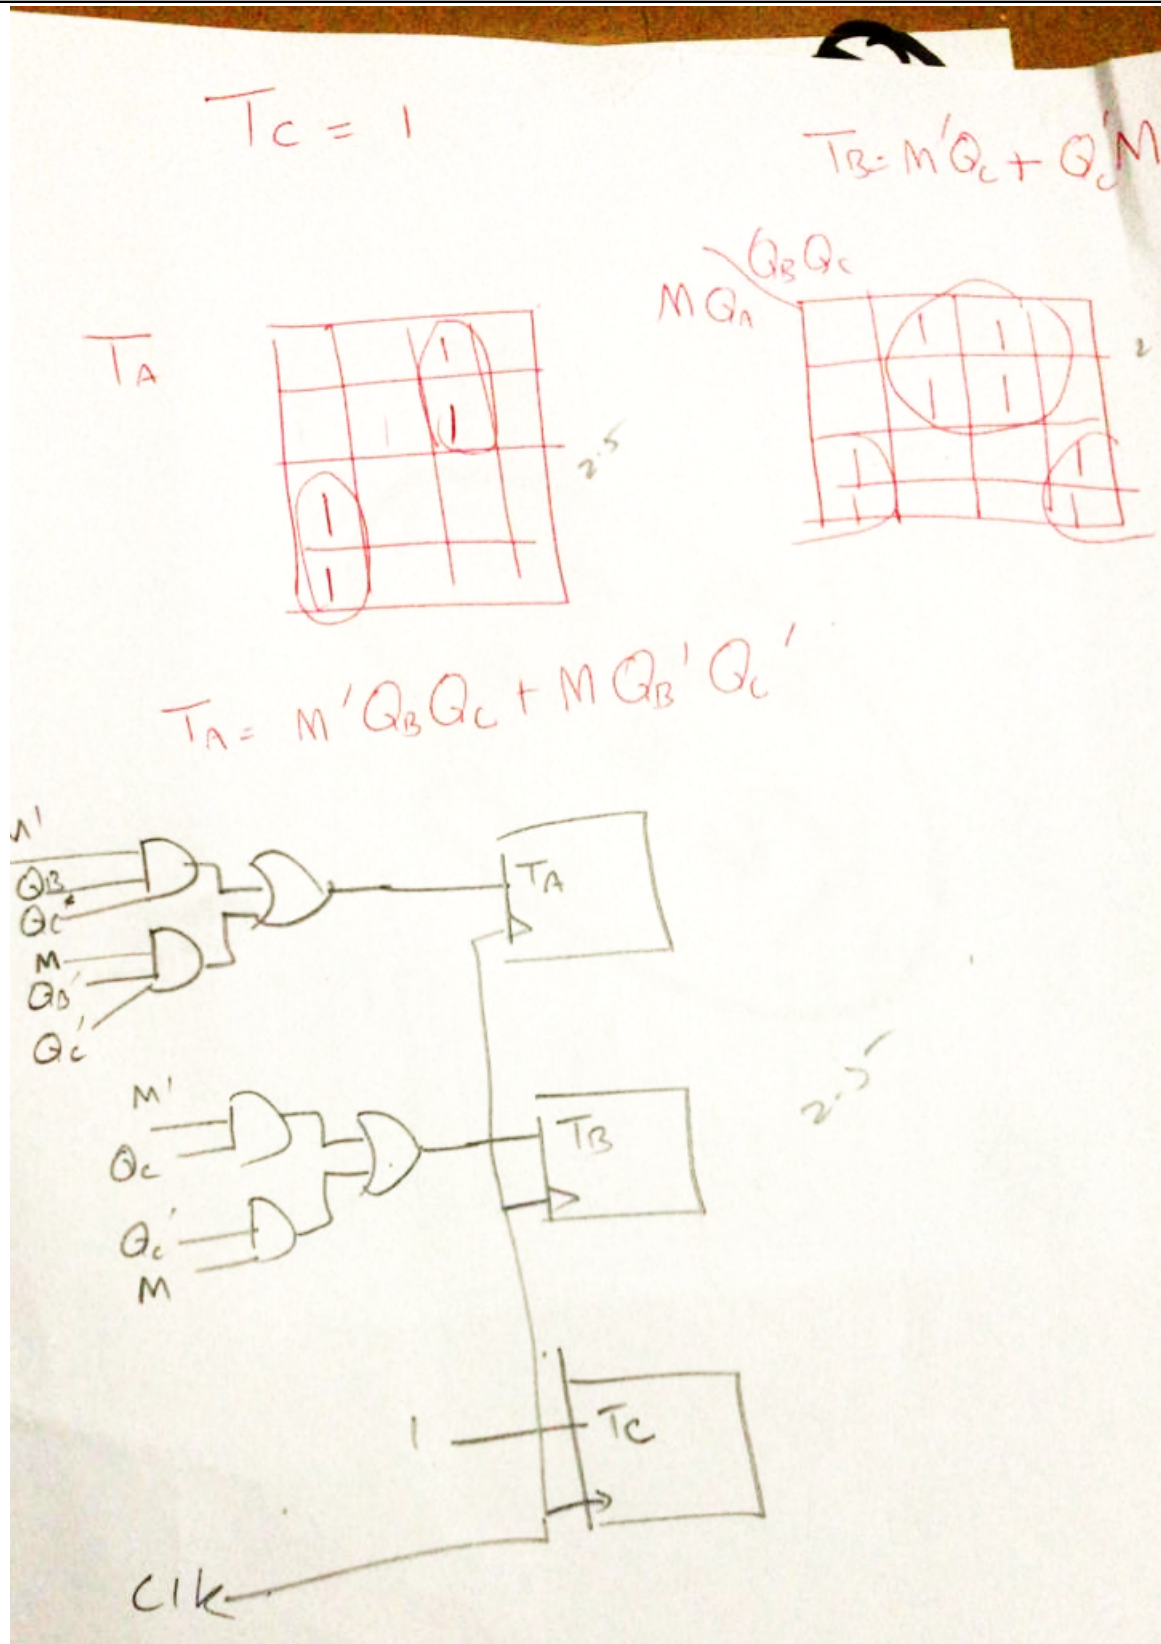 TC = 1
TB = M'QC + QC'M
QBQC
MQA
TA
1
1
1
1
2.5
1 1
1 1
1 1
1 1
2
TA = M'QBQC + MQB'QC'
M'
QB
QC
M
QB'
QC'
TA
M'
QC
QC'
M
TB
2.5
1
TC
Clk